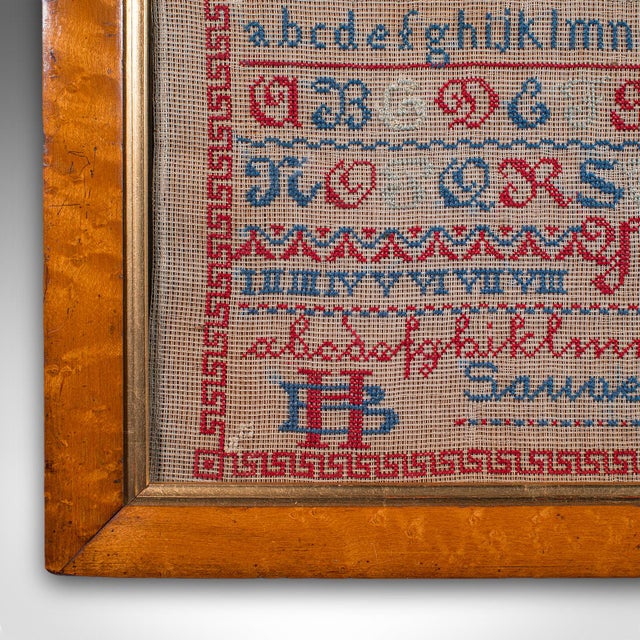 abcdefghijklmn
ABCDEFG
NOPQRS
Y
I II III IV V VI VII VIII
abcdefghiklm
HB